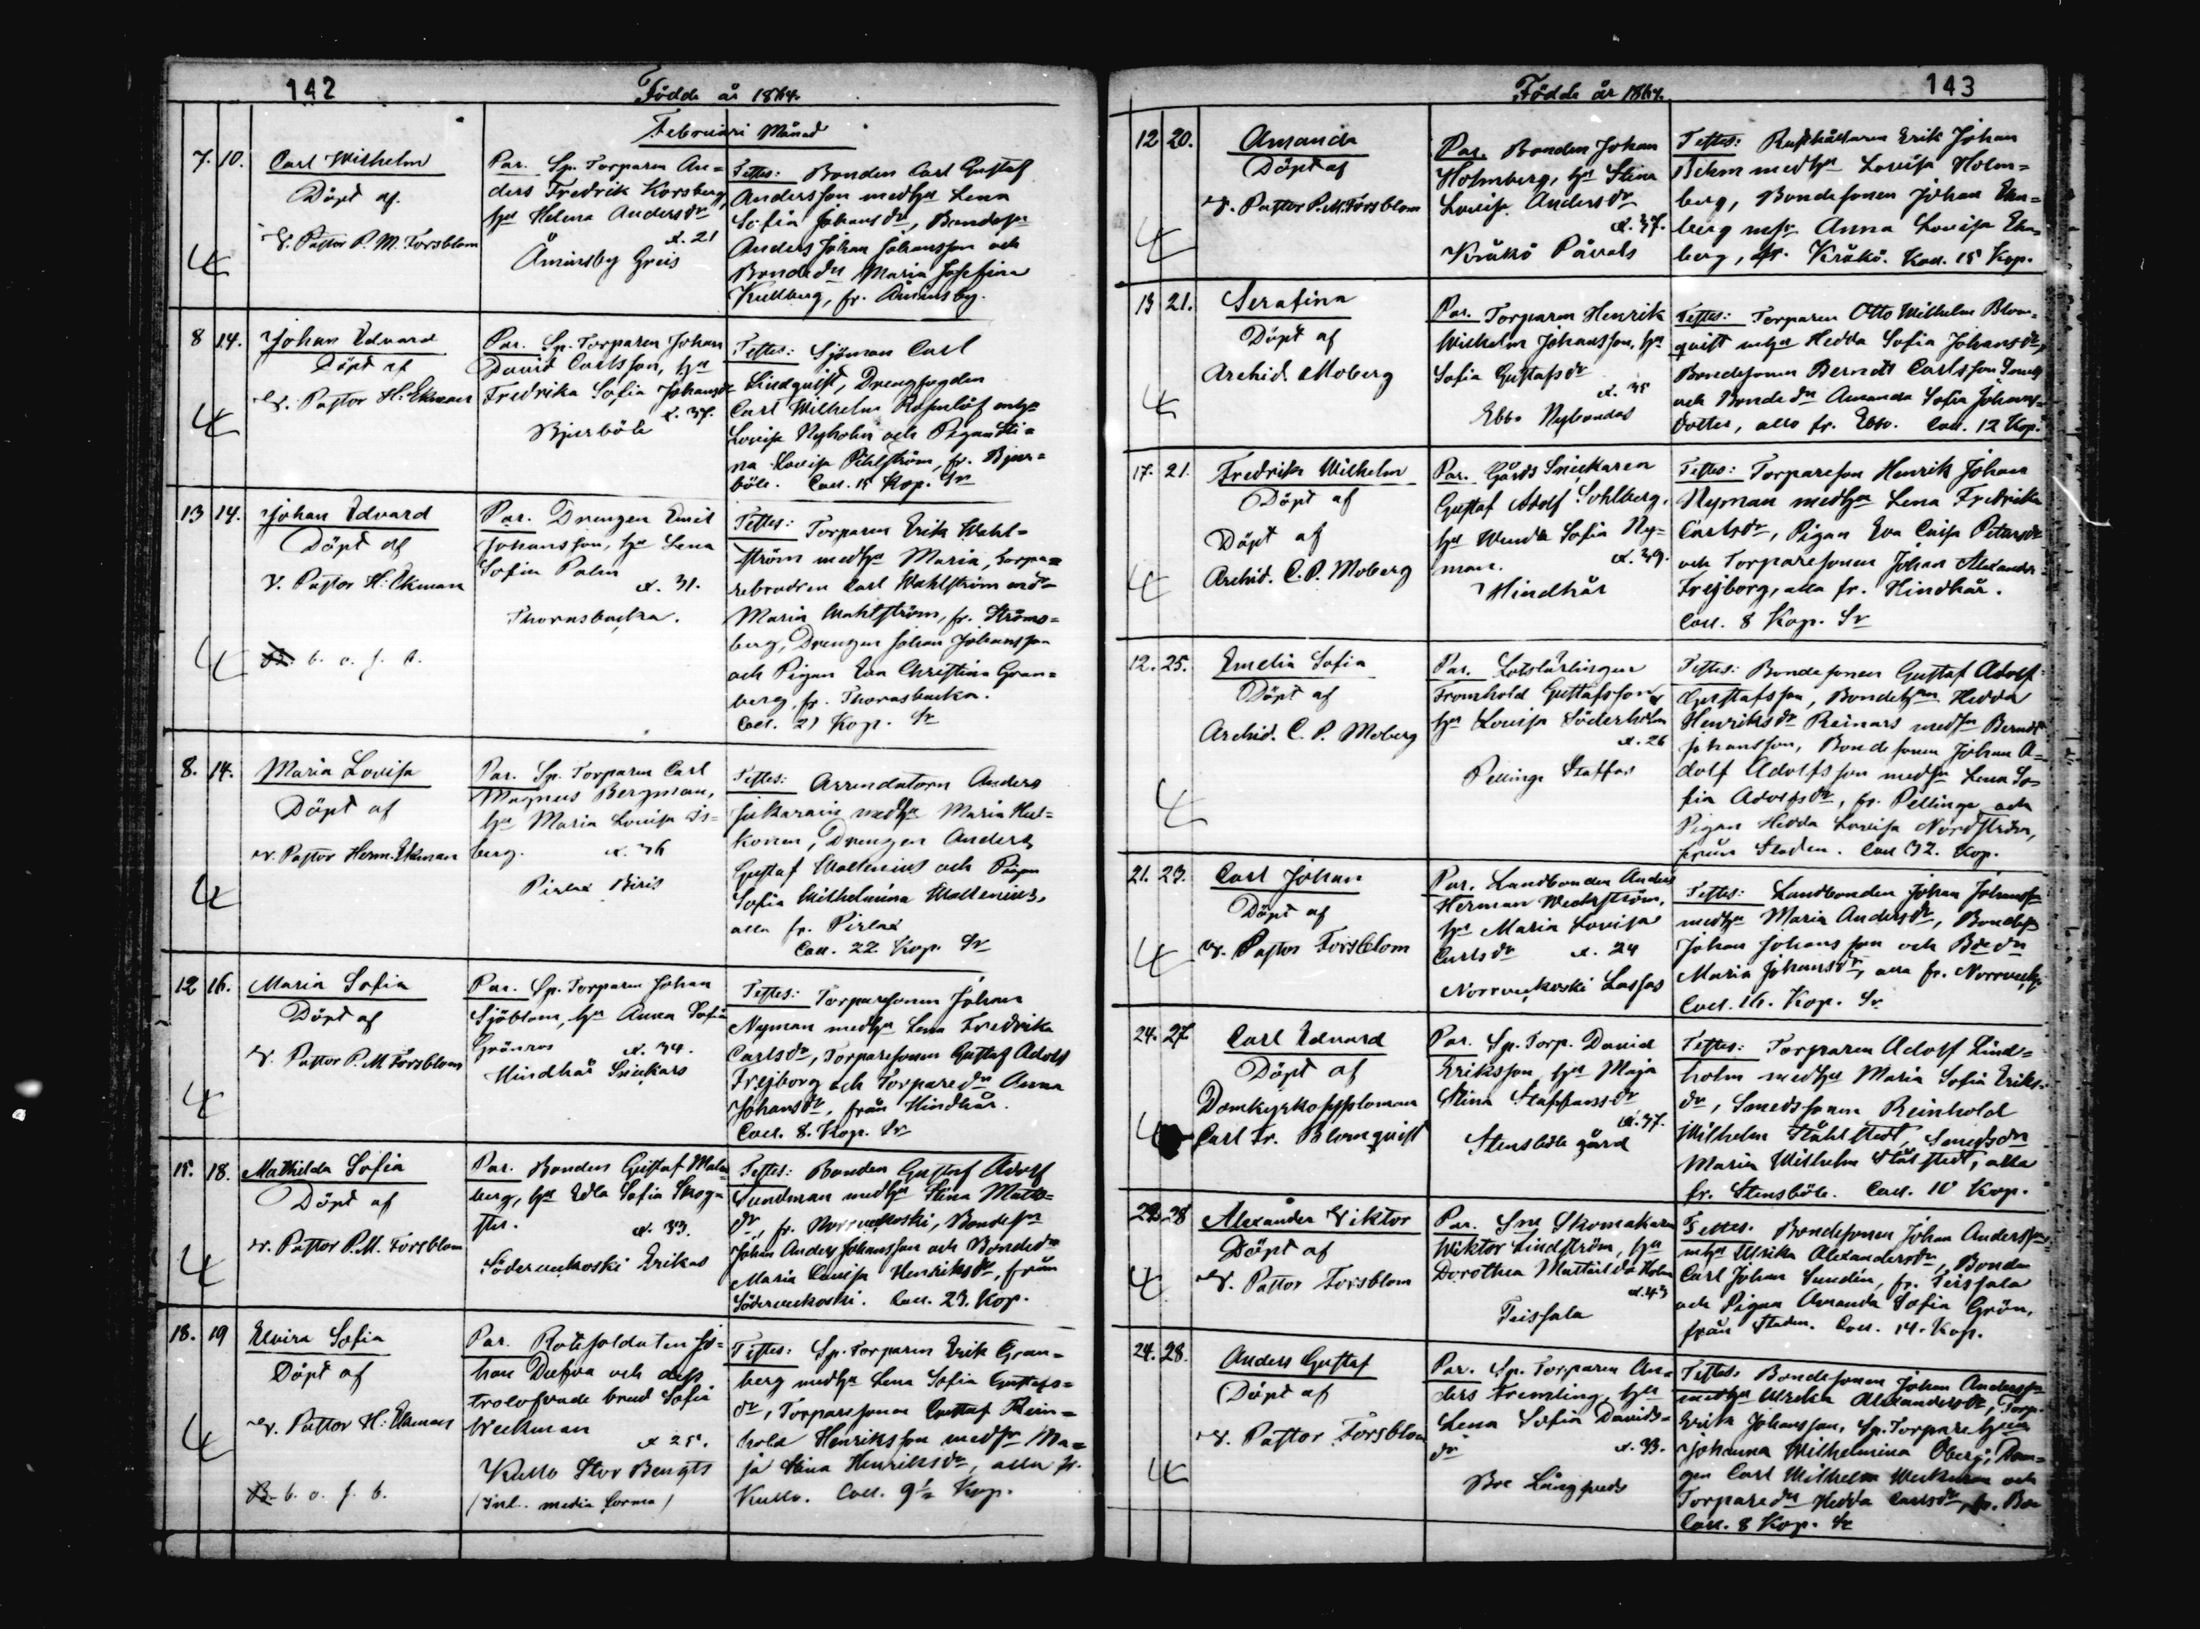 142
Födde år 1864.
Februari Månad
7. 10.
Carl Wilhelm
Döpt af.
V. Pastor P. M. Forsblom
Par. Sp. Torparen An=
ders Fredrik Korsberg,
hu Helena Andersdr
æ. 21
Åminsby Greis
Testes: Bonden Carl Gustaf
Andersson medhu Lena
Sofia Johansdr, Bondesn
Anders Johan Johansson och
Bondedr Maria Josefina
Kullberg, fr. Åminsby.
8 14.
Johan Edvard
Döpt af
V. Pastor H. Ekman
Par. Sp. Torparen Johan
David Carlsson, hu
Fredrika Sofia Johansdr
æ. 37.
Bjurböle
Testes: Sjöman Carl
Lindqvist, Drengfogden
Carl Wilhelm mhu
Lovisa Nyholm och Pigan Sti=
na Lovisa Pihlström, fr. Bjur=
böle. Coll. 15 Kop. Sr
13 14.
Johan Edvard
Döpt af
V. Pastor H. Ekman
b. o. f. b.
Par. Drengen Emil
Johansson, hu Lena
Sofia Palm
æ. 31.
Thorasbacka.
Testes: Torparen Erik Wahl=
ström medhu Maria, torpa=
rebrodren Carl Wahlström och
Maria Wahlström, fr. Ströms=
berg, Drengen Johan Johansson
och Pigan Eva Christina Gran=
berg, fr. Thorasbacka.
Coll. 21 Kop. Sr
8. 14.
Maria Lovisa
Döpt af
v. Pastor Herm. Ekman
Par. Sp. Torparen Carl
Magnus Bergman,
hu Maria Lovisa Is=
berg. æ. 36
Pirlax Biris
Testes: Arrendatorn Anders
medhu Maria Huk=
konen, Drengen Anders
Gustaf Waltenius och Pigan
Sofia Wilhelmina Waltenius,
alla fr. Pirlax
Coll. 22 Kop. Sr
12 16.
Maria Sofia
Döpt af
V. Pastor P. M. Forsblom
Par. Sp. Torparen Johan
Sjöblom, hu Anna Sofia
Grönros æ. 34.
Hindhår Snickars
Testes: Torparesonen Johan
Nyman medhu Lena Fredrika
Carlsdr, Torparesonen Gustaf Adolf
Frejborg och Torparedr Anna
Johansdr, från Hindhår.
Coll. 8. Kop. Sr
15. 18.
Mathilda Sofia
Döpt af
v. Pastor P. M. Forsblom
Par. Bonden Gustaf Malm=
berg, hu Edla Sofia Skog=
ster. æ. 33.
Söderveckoski Erikas
Testes: Bonden Gustaf Adolf
Sundman medhu Stina Matts=
dr, fr. Norrveckoski, Bondesn
Johan Anders Johansson och Bondedr
Maria Lovisa Henriksdr, från
Söderveckoski. Coll. 23. Kop.
18. 19
Elvira Sofia
Döpt af
V. Pastor H. Ekman
b. o. f. b.
Par. Rotesoldaten Jo=
han Dufva och dess
trolofvade brud Sofia
Weckman
æ 25.
Kullo Stor Bengts
(Inl. media forma)
Testes: Sp. Torparen Erik Gran=
berg medhu Lena Sofia Gustafs=
dr, Torparesonen Gustaf Rein=
hold Henriksson medsr Ma=
ja Stina Henriksdr, alla fr.
Kullo. Coll. 9½ Kop.
143
Födde år 1864.
12 20.
Amanda
Döpt af
V. Pastor P. M. Forsblom
Par. Bonden Johan
Holmberg, hu Stina
Lovisa Andersdr
æ. 37.
Kråkö Påvals
Testes: Rusthållaren Erik Johan
medhu Lovisa Holm=
berg, Bondesonen Johan Eke=
berg msr Anna Lovisa Eke=
berg, fr. Kråkö. Koll. 15 Kop.
13 21.
Serafina
Döpt af
Archid. Moberg
Par. Torparen Henrik
Wilhelm Johansson, hu
Sofia Gustafsdr
æ. 35
Ebbo Nybondas
Testes: Torparen Otto Wilhelm Blom=
qvist mhu Hedda Sofia Johansdr,
Bondesonen Berndt Carlsson
och Bondedr Amanda Sofia Johans=
dotter, alla fr. Ebbo. Coll. 12 Kop.
17. 21.
Fredrik Wilhelm
Döpt af
Döpt af
Archid. C. P. Moberg
Par. Gårds Snickaren
Gustaf Adolf Sohlberg,
hu Wenda Sofia Ny=
man. æ. 39.
Hindhår
Testes: Torpareson Henrik Johan
Nyman medhu Lena Fredrika
Carlsdr, Pigan Eva Caisa Petersdr
och Torparesonen Johan Alexander
Frejborg, alla fr. Hindhår.
Coll. 8 Kop. Sr
12. 25.
Emelia Sofia
Döpt af
Archid. C. P. Moberg
Par. Lotslärlingen
Fromhold Gustafsson
hu Lovisa Söderholm
æ. 26
Pellinge Staffas
Testes: Bondesonen Gustaf Adolf
Gustafsson, Bondehun Hedda
Henriksdr Reinars medsn Berndt
Johansson, Bondesonen Johan A=
dolf Adolfsson medsr Lena So=
fia Adolfsdr, fr. Pellinge och
Pigan Hedda Lovisa Nordström,
från Staden. Coll 32. Kop.
21. 23.
Carl Johan
Döpt af
V. Pastor Forsblom
Par. Landbonden Anders
Herman Weckström,
hu Maria Lovisa
Carlsdr æ. 24
Norrveckoski Lassas
Testes: Landbonden Johan Johansson
medhu Maria Andersdr, Bondesn
Johan Johansson och Bdedr
Maria Johansdr, alla fr. Norrveckoski
Coll. 16. Kop. Sr
24. 27
Carl Edvard
Döpt af
Domkyrkosysloman
Carl Fr. Blomqvist
Par. Sp. Torp. David
Eriksson, hu Maja
Stina Staffansdr
æ. 37.
Stensböle gård
Testes: Torparen Adolf Lind=
holm medhu Maria Sofia Eriks=
dr, Smedssonen Reinhold
Wilhelm Stålstedt, Smedsdr
Maria Wilhelm Stålstedt, alla
fr. Stensböle. Coll. 10 Kop.
28
Alexander Viktor
Döpt af
V. Pastor Forsblom
Par. Sn Skomakaren
Wiktor Lindström, hu
Dorothea Mathilda Holm
æ. 43
Teissala
Testes. Bondesonen Johan Andersson
mhu Ulrika Alexandersdr, Bonden
Carl Johan Sundin, fr. Teissala
och Pigan Amanda Sofia Grön,
från Staden. Coll. 14. Kop.
24. 28.
Anders Gustaf
Döpt af
V. Pastor Forsblom
Par. Sp. Torparen An=
ders Fremling, hu
Lena Sofia Davids=
dr æ. 33.
Boe Långfreds
Testes. Bondesonen Johan Andersson
medhu Ulrika Alexandersdr, Torp.
Erik Johansson, Sp. Torparehun
Johanna Wilhelmina Öberg, Dren=
gen Carl Wilhelm Weckman och
Torparedr Hedda Carlsdr, fr. Boe
Coll. 8 Kop. Sr